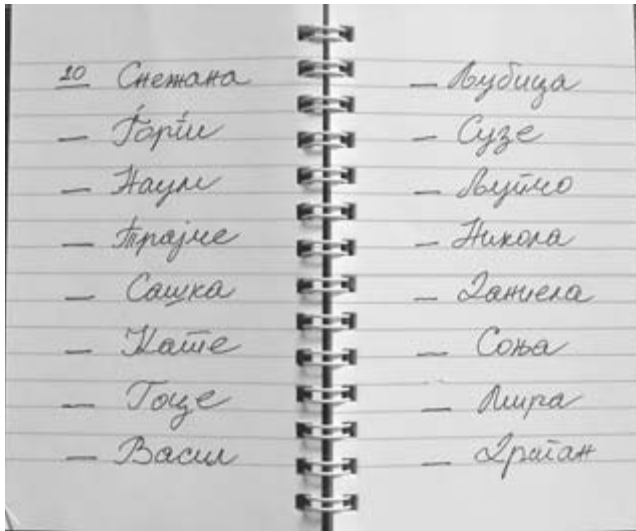 10 Снежана
_ Ѓорѓи
_ Наум
_ Трајче
_ Сашка
_ Кате
_ Гоце
_ Васил
_ Љубица
_ Сузе
_ Љупчо
_ Никола
_ Даниела
_ Соња
_ Мира
_ Драган